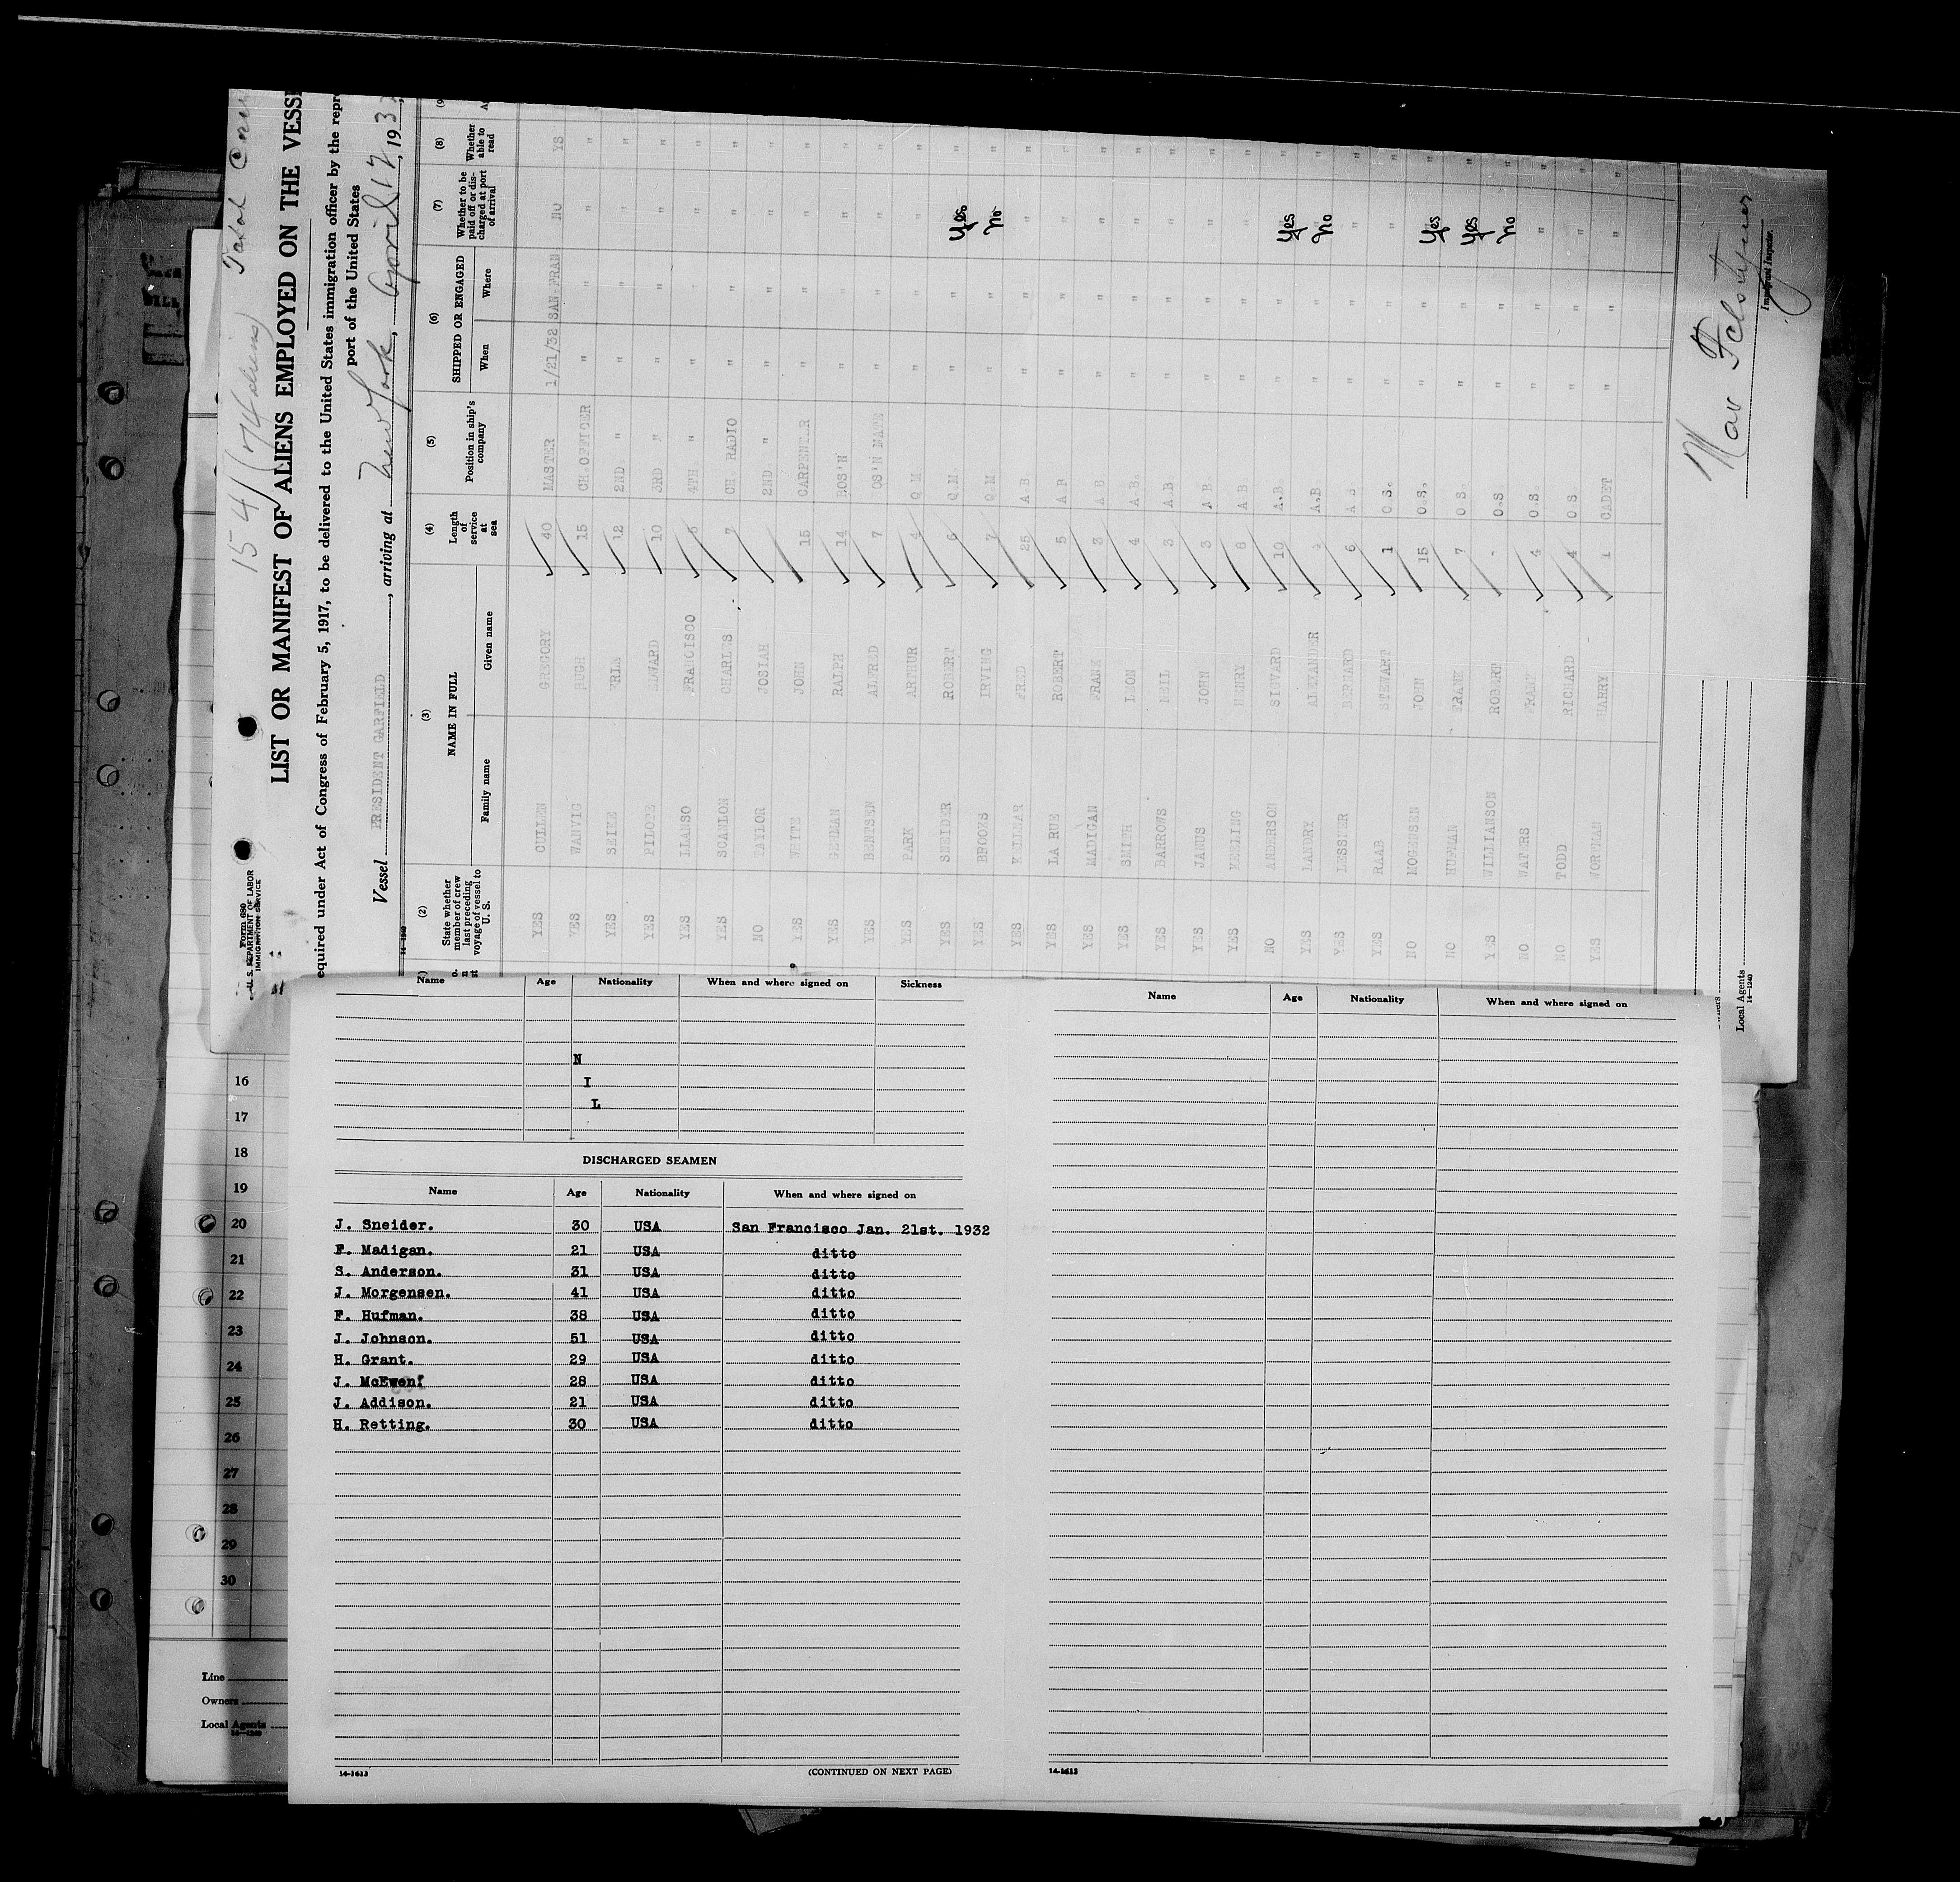 154 (74 aliens) Total Crew
Form 680
U. S. DEPARTMENT OF LABOR
IMMIGRATION SERVICE
LIST OR MANIFEST OF ALIENS EMPLOYED ON THE VESS
equired under Act of Congress of February 5, 1917, to be delivered to the United States immigration officer by the repr
port of the United States
Vessel PRESIDENT GARFIELD, arriving at New York, April 17, 193
14—1240
(2) (3) (4) (5) (6) (7) (8)
State whether member of crew last preceding voyage of vessel to U. S.
NAME IN FULL
Family name Given name
Length of service at sea
Position in ship's company
SHIPPED OR ENGAGED
When Where
Whether to be paid off or discharged at port of arrival
Whether able to read
YES CULLEN GREGORY 40 MASTER 1/21/32 SAN FRAN NO YS
YES WANVIG HUGH 15 CH.OFFICER " " " "
YES 12 2ND. " " " " "
YES EDWARD 10 3RD " " " " "
YES LLANSO FRANCISCO 4TH " " " " "
YES SCANLON CHARLES 7 CH RADIO " " " "
NO TAYLOR JOSIAH 2ND " " " " "
YES WHITE JOHN 15 " " " "
YES RALPH 14 BOS'N " " " "
YES BENTSEN ALFRED 7 OS'N MATE " " " "
YES PARK ARTHUR 4 Q M " " " "
YES SNEIDER ROBERT 6 Q M. " " Yes "
YES BROOKS IRVING 7 Q M " " No "
YES FRED 25 A B " " " "
YES LA RUE ROBERT 5 A B " " " "
YES MADIGAN FRANK 3 A B " " " "
YES SMITH LEON 4 A B. " " " "
YES BARROWS NEIL 3 A B " " " "
YES JANUS JOHN 3 A B " " " "
YES KEELING HENRY 8 A B " " " "
NO ANDERSON SIGVARD 10 A.B " " Yes "
YES LANDRY ALEXANDER A.B " " No "
YES LESSNER BERNARD 6 A B " " " "
YES RAAB STEWART 1 O.S. " " " "
NO MORGENSEN JOHN 15 O.S. " " Yes "
NO HUFMAN FRANK 7 O S. " " Yes "
YES WILLIANSON ROBERT - O.S. " " No "
NO WATERS FRANK 4 O.S. " " " "
NO TODD RICHARD 4 O S " " " "
YES WORKMAN HARRY 1 CADET " " " "
Immigrant Inspector.
Local Agents
14—1240
Name Age Nationality When and where signed on Sickness
N
I
L
DISCHARGED SEAMEN
Name Age Nationality When and where signed on
J. Sneider. 30 USA San Francisco Jan. 21st. 1932
F. Madigan. 21 USA ditto
S. Anderson. 31 USA ditto
J. Morgensen. 41 USA ditto
F. Hufman. 38 USA ditto
J. Johnson. 51 USA ditto
H. Grant. 29 USA ditto
J. McEwen. 28 USA ditto
J. Addison. 21 USA ditto
H. Retting. 30 USA ditto
14-1613
(CONTINUED ON NEXT PAGE)
Name Age Nationality When and where signed on
14-1613
16
17
18
19
20
21
22
23
24
25
26
27
28
29
30
Line
Owners
Local Agents
14—1240